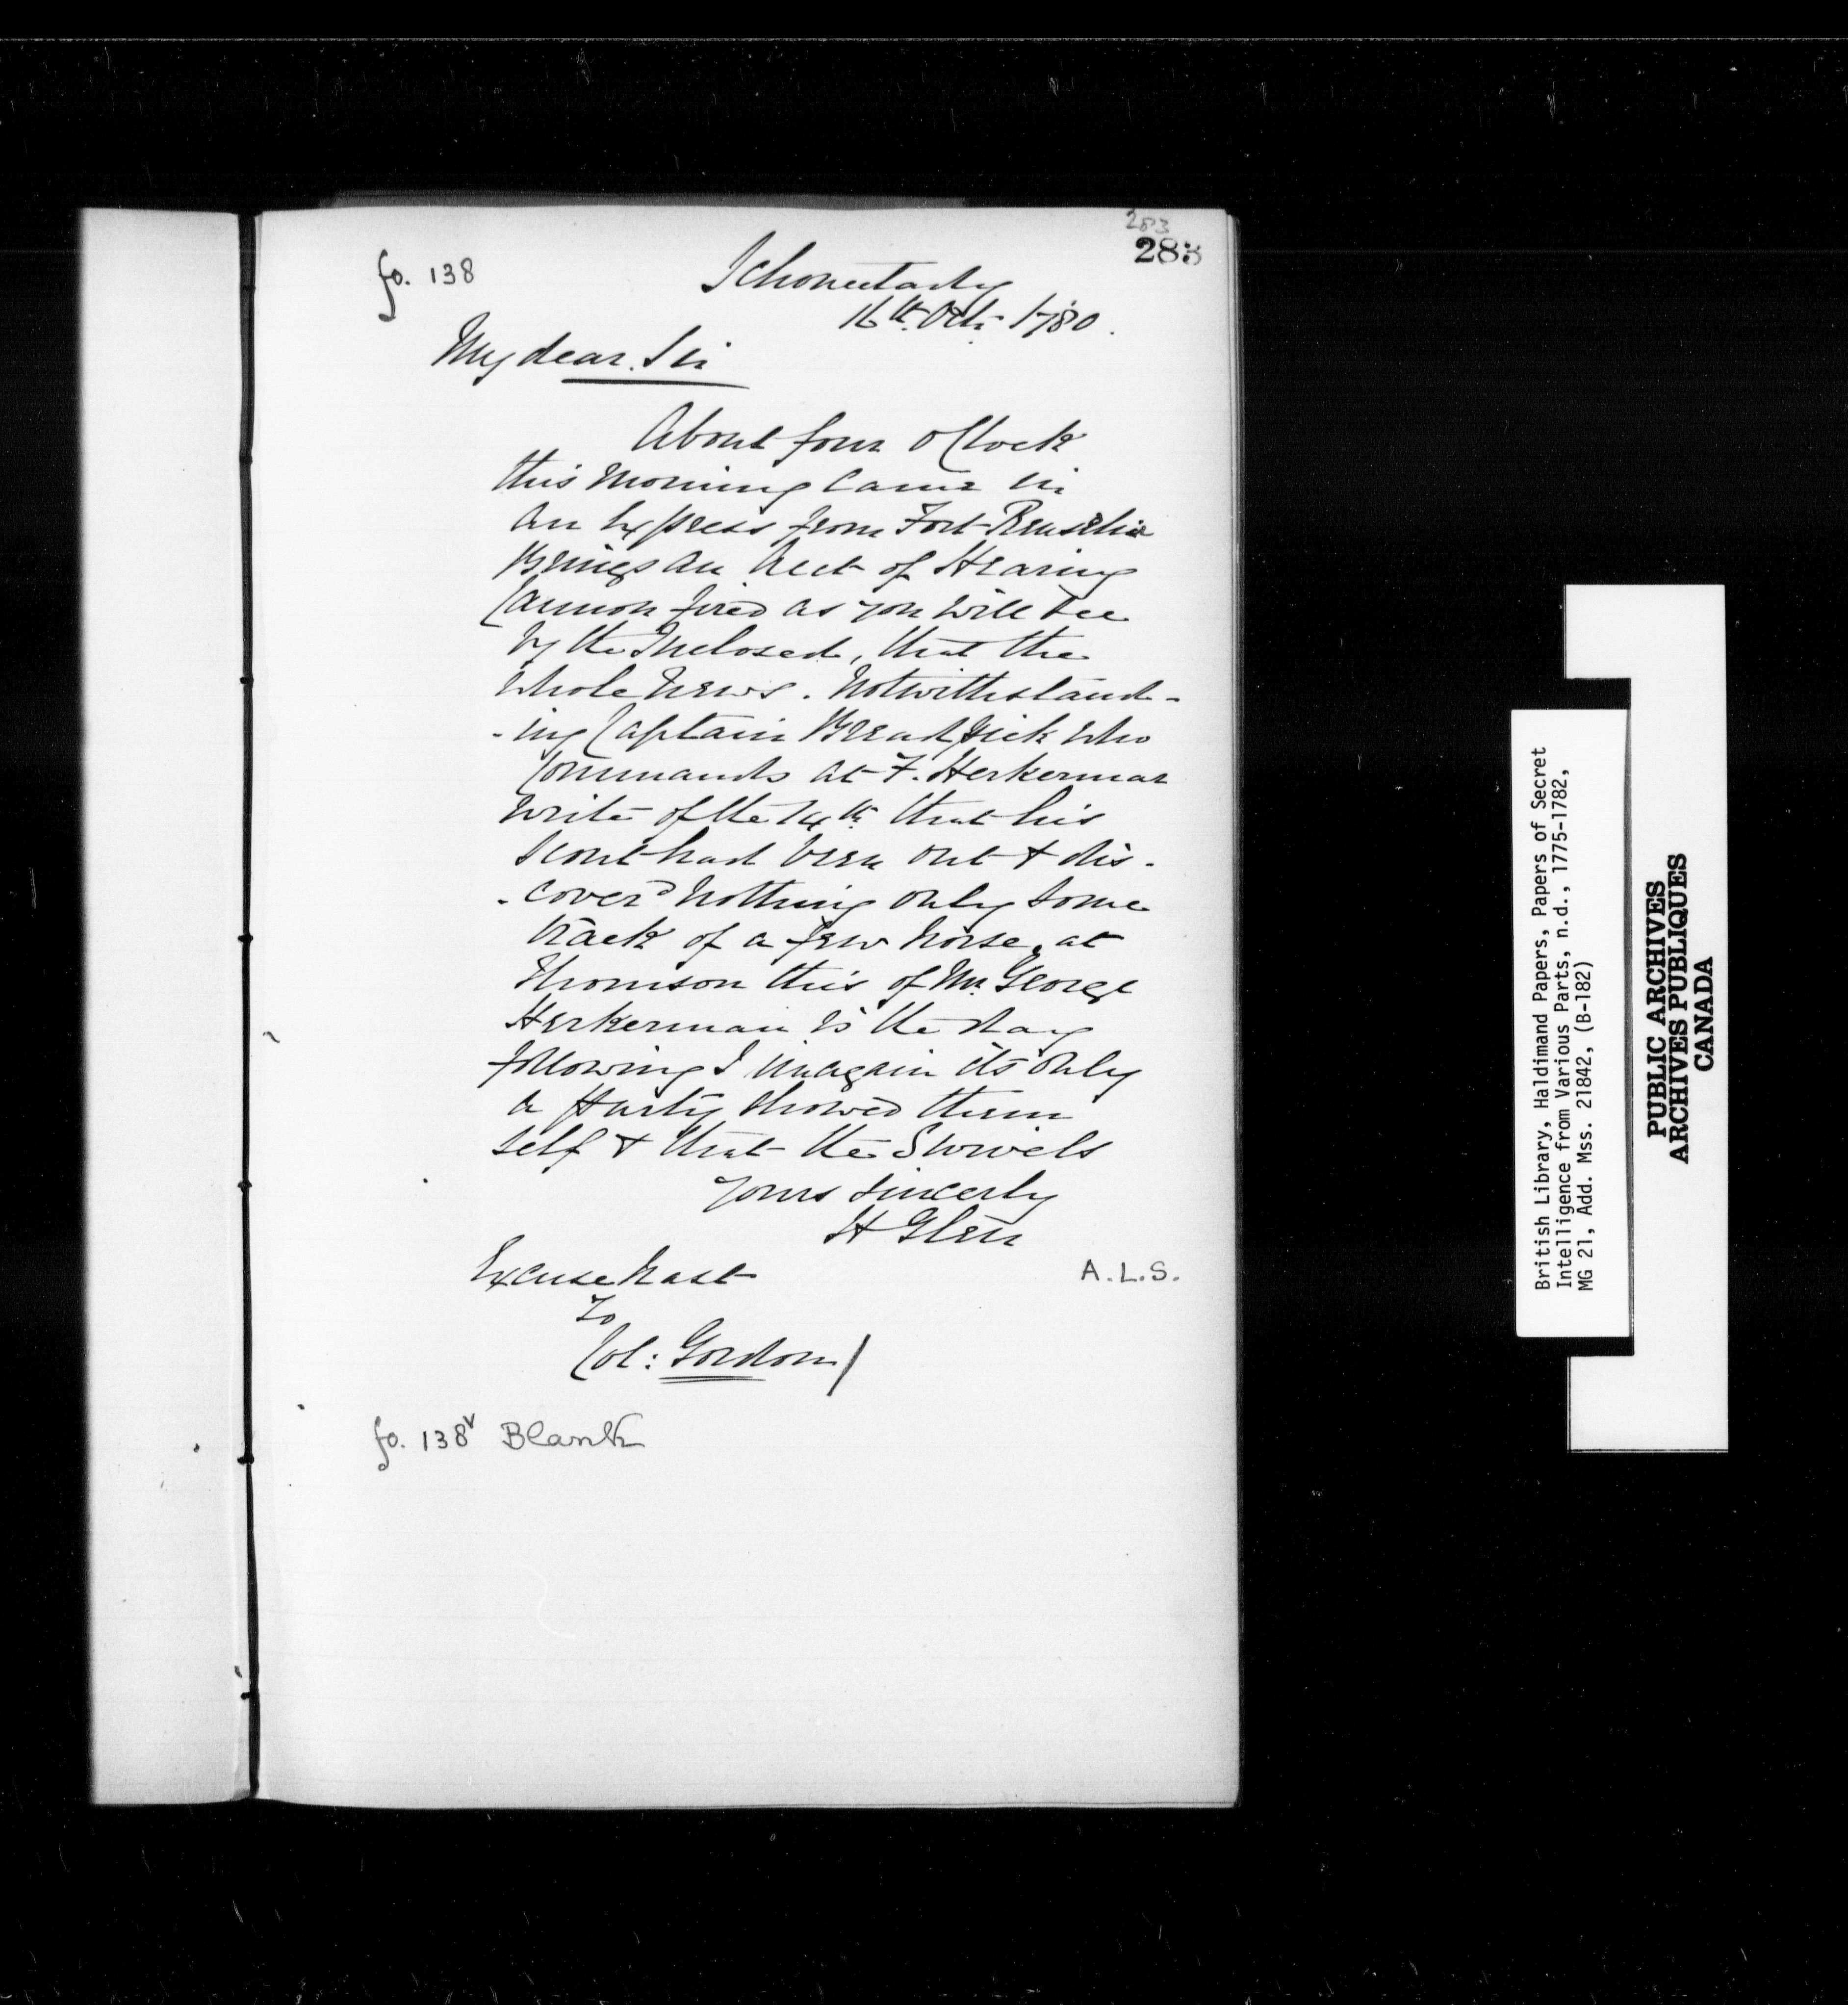 283
283
fo. 138
Schonectady
16th. Octr. 1780.
My dear. Sir
About four oClock
this Morning Came in
An Express from Fort
Brings An Acct of Hearing
Cannon fired as you Will See
by the Inclosed, that the
Whole News. Notwithstand-
-ing Captain who
Commands at F. Herkermar
write of the 14th. that his
Scout had been out & dis-
-coverd Nothing only Some
track of a few horse, at
this of Mr. George
Herkerman is the day
following I imagain its only
a Party Showed them
self & that the Swivels
Yours Sincerly
H Glen
Excuse hast
A.L.S.
To
Col: Gordon/
fo. 138v Blank
British Library, Haldimand Papers, Papers of Secret
Intelligence from Various Parts, n.d., 1775-1782,
MG 21, Add. Mss. 21842, (B-182)
PUBLIC ARCHIVES
ARCHIVES PUBLIQUES
CANADA